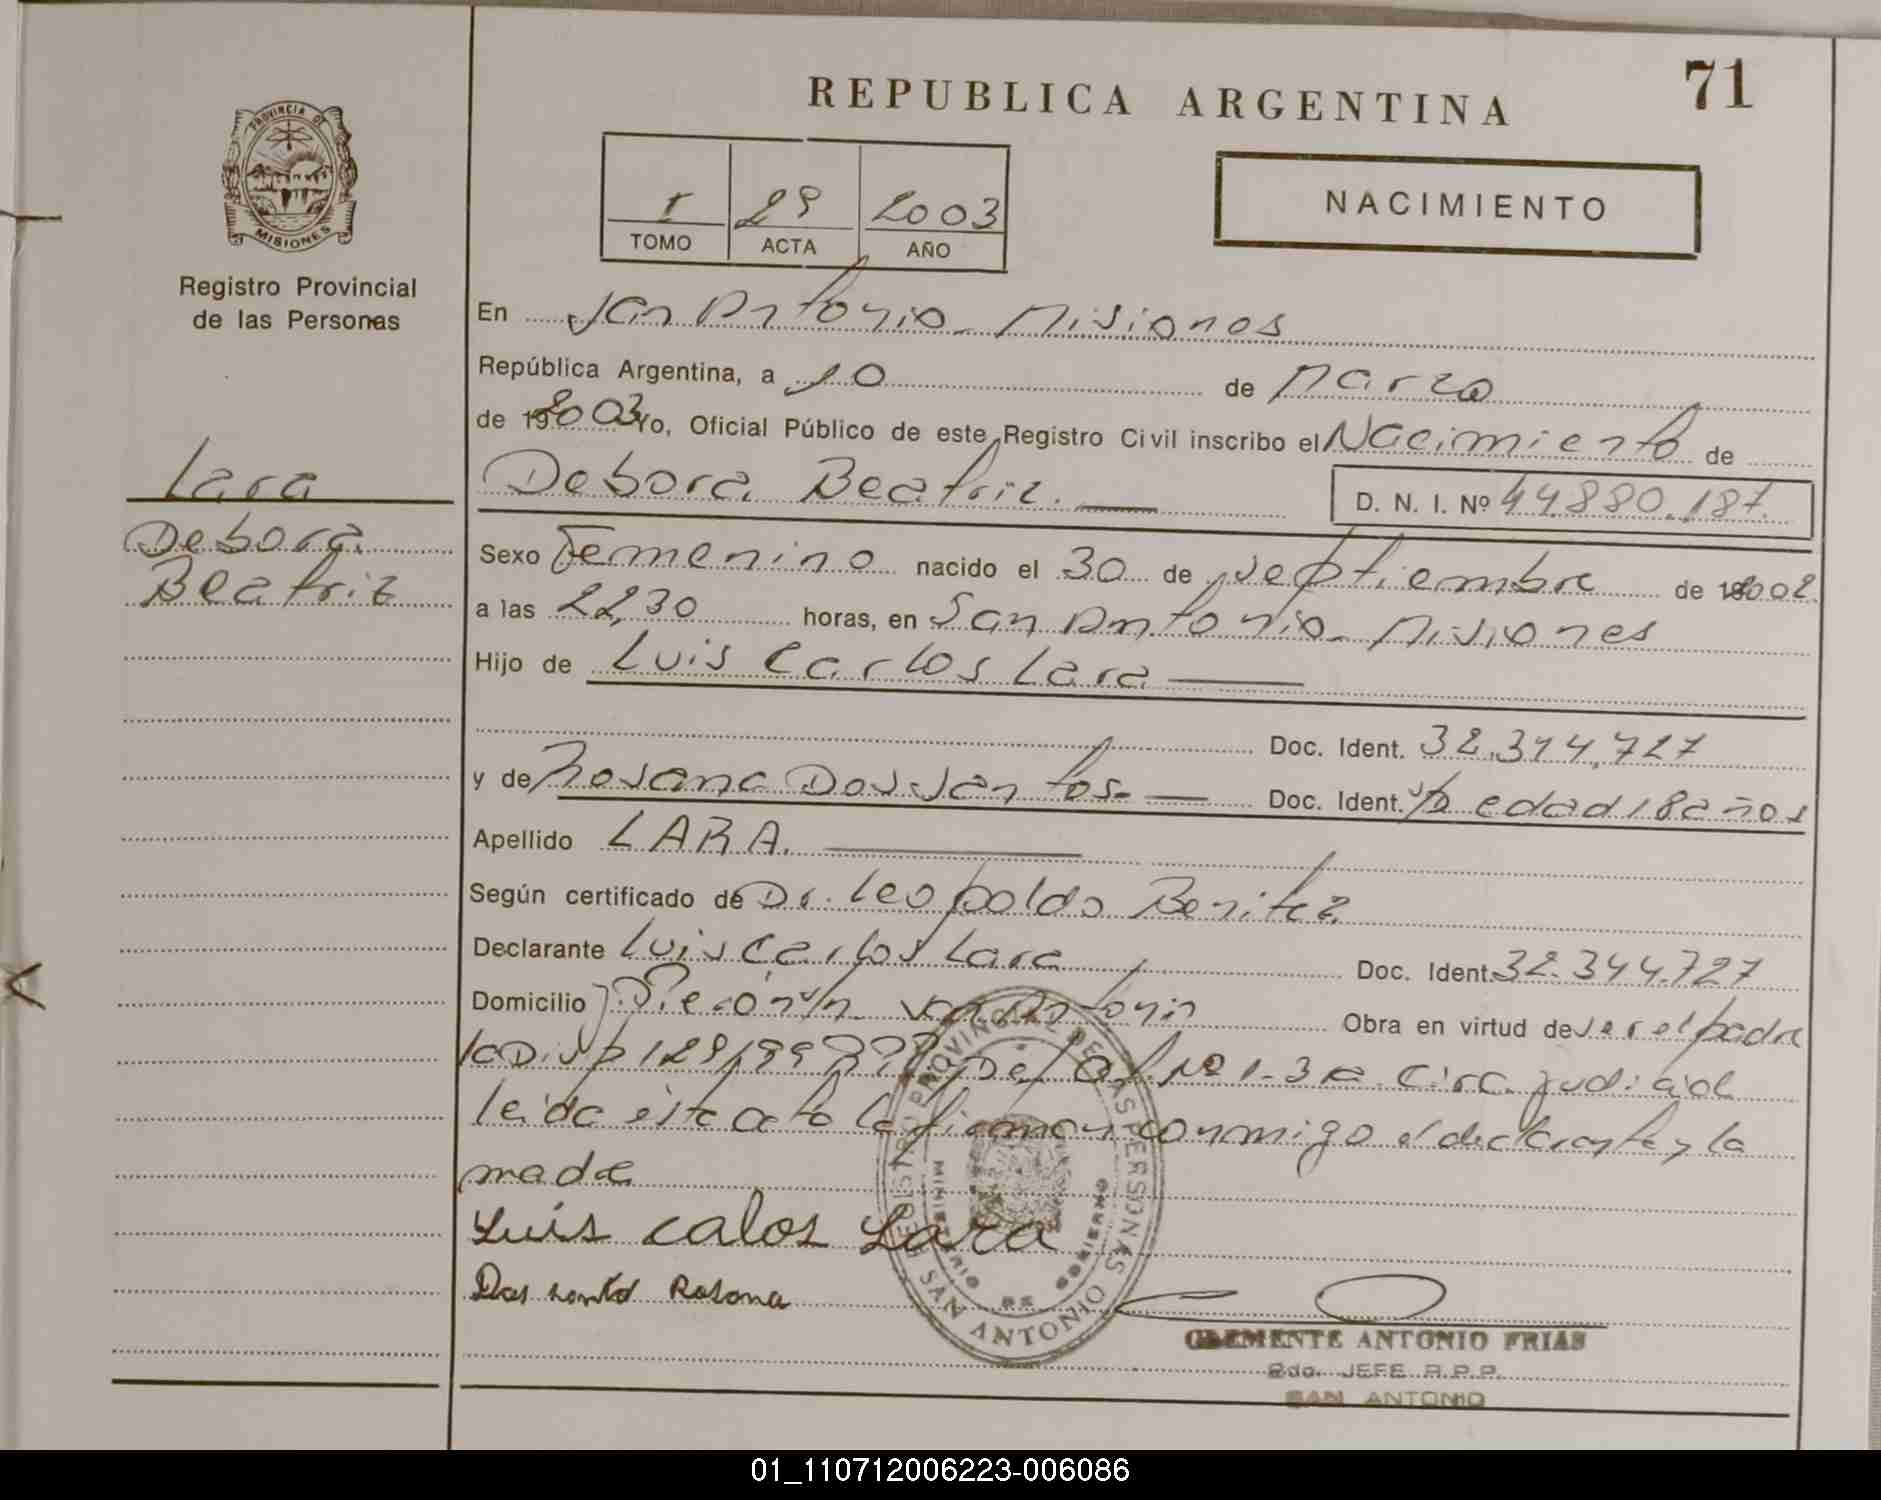 REPUBLICA ARGENTINA
71
PROVINCIA DE
MISIONES
Registro Provincial
de las Personas
I 29 2003
TOMO ACTA AÑO
NACIMIENTO
En San Antonio - Misiones
República Argentina, a 10 de Marzo
de 192003 Yo, Oficial Público de este Registro Civil inscribo el Nacimiento de
Debora Beatriz. D. N. I. Nº 44.880.187.
Lara
Debora
Beatriz
Sexo Femenino nacido el 30 de Septiembre de 2002
a las 22,30 horas, en San Antonio - Misiones
Hijo de Luis Carlos Lara
Doc. Ident. 32.344.727
y de Rosana Dos Santos - Doc. Ident. edad 18 años
Apellido LARA.
Según certificado de Dr. Leopoldo Benitez
Declarante Luis Carlos Lara Doc. Ident. 32.344.727
Domicilio San Antonio Obra en virtud de ser el padre
Nº 1 - 3a. Circ. Judicial
leida esta acta la firman conmigo el declarante y la
madre
Luis calos Lara
Dos Rosana
REGISTRO PROVINCIAL DE LAS PERSONAS
MINISTERIO DE GOBIERNO
SAN ANTONIO
CLEMENTE ANTONIO FRIAS
2do. JEFE R.P.P.
SAN ANTONIO
01_110712006223-006086